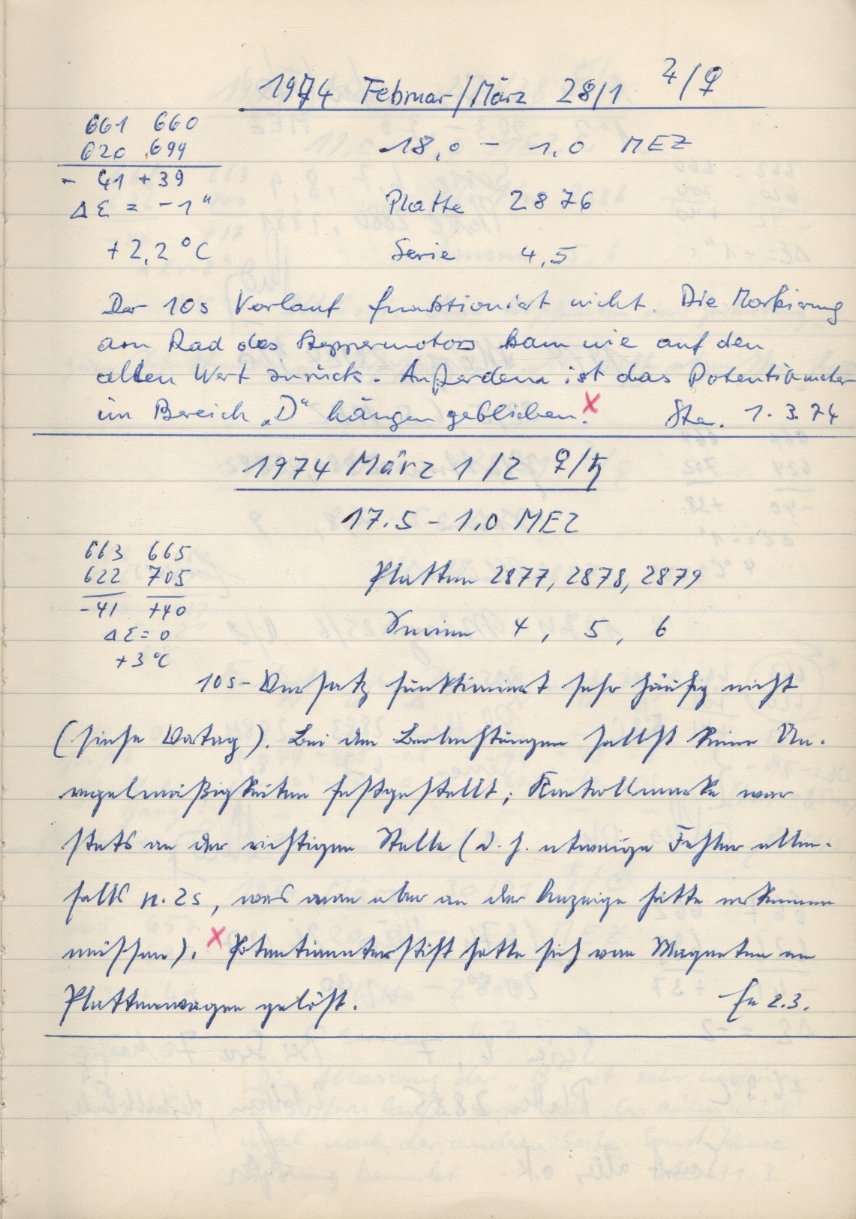 1974 Februar/März 28/1 ♃/♀
661 660
620 699
18,0 – 1.0 MEZ
- 41 +39
Δε = -1"
Platte 2876
+2,2 °C
Serie 4,5
Der 10s Vorlauf funktioniert nicht. Die Markierung
am Rad des Steppermotors kam nie auf den
alten Wert zurück. Außerdem ist das Potentiometer
im Bereich „D" hängen geblieben. x Ste. 1.3.74
1974 März 1/2 ♀/♄
17.5 – 1.0 MEZ
663 665
622 705
-41 +40
Δε = 0
+3°C
Platten 2877, 2878, 2879
Serien 4, 5, 6
10s-Vorsatz funktioniert sehr häufig nicht
(siehe Vortag). Bei den Beobachtungen selbst keine Un-
regelmäßigkeiten festgestellt; Kontrollmarke war
stets an der richtigen Stelle (d.h. etwaige Fehler allen-
falls n. 2s, was man aber an der Anzeige hätte erkennen
müssen). x Potentiometerstift hatte sich vom Magneten am
Plattenwagen gelöst. 2.3.